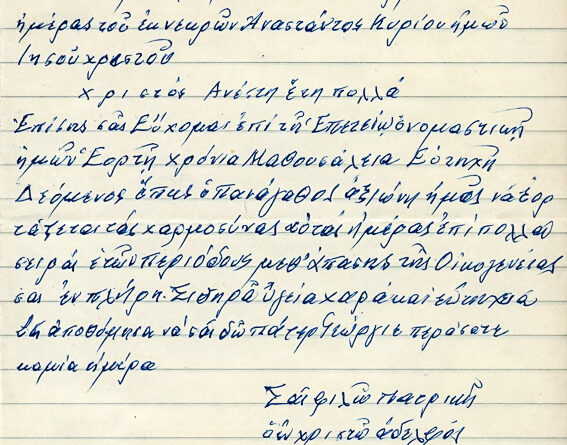 ἡμέρας τοῦ ἐκ νεκρῶν Ἀναστάντος Κυρίου ἡμῶν
Ἰησοῦ χριστοῦ
χριστός Ἀνέστη ἔτη πολλά
Ἐπίσης σᾶς Εὔχομαι ἐπί τῇ Ἐπετείῳ ὀνομαστικῇ
ἡμῶν Ἑορτῇ χρόνια Μαθουσάλεια Εὐτηχῆ
Δεόμενος ὅπως ὁ πανάγαθος ἀξιώνη ἡμᾶς νά ἑορ
τάζεται τάς χαρμοσύνας αὐτάς ἡμέρας ἐπί πολλάς
σειράς ἐτῶν περιόδους μεθ' ἁπάσης τῆς Οἰκογενείας
σας ἐν πλήρη. Σιδηρᾶ ὑγεία χαρά και εὐτηχεια
ἀποθύμησα νά σᾶς ἰδῶ πάτερ Γεώργιε περάσετε
καμία ἡμέρα
Σᾶς φιλῶ πατρικῶς
ὁ ἐν χριστῷ ἀδελφός